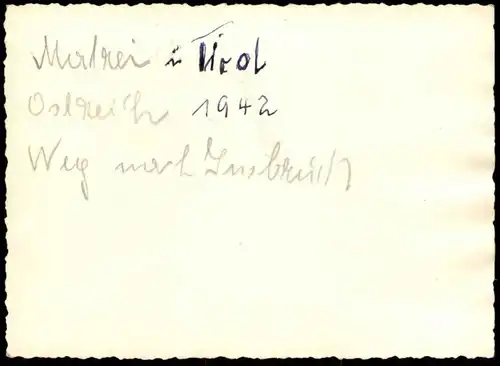 Matrei i Tirol
Ostreich 1942
Weg nach Innsbruck